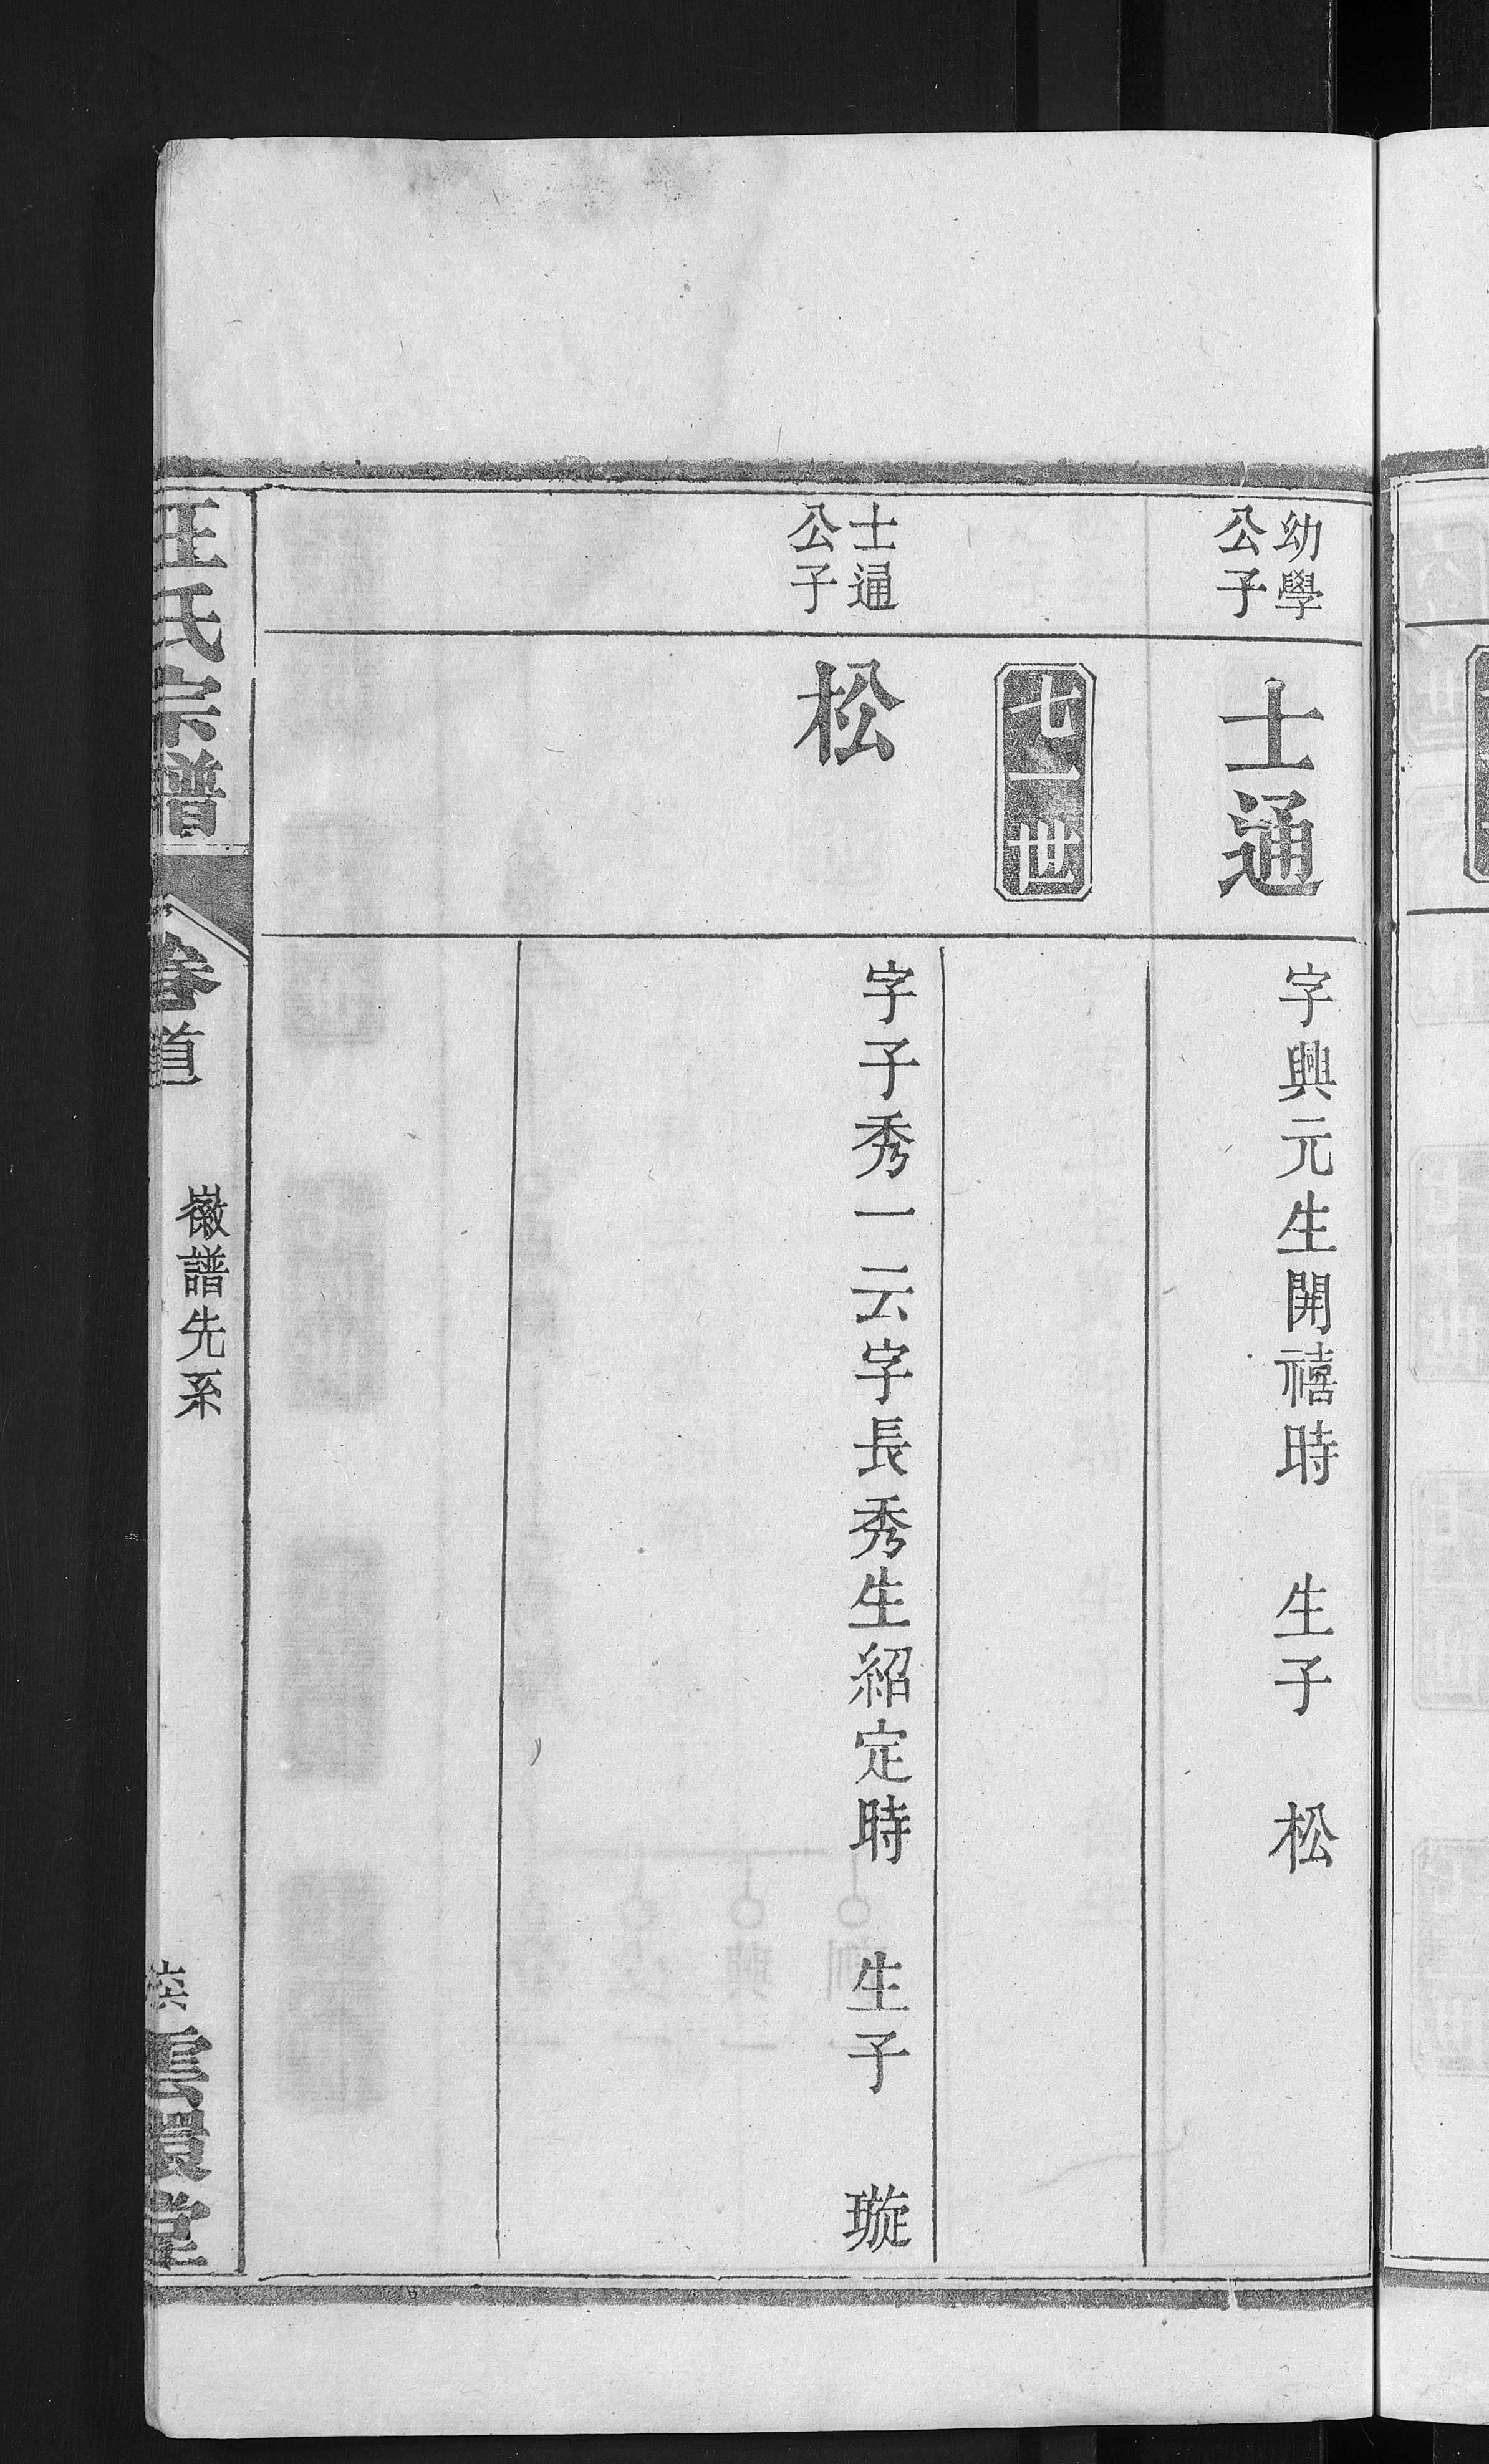 幼學
公子
士通
字興元生開禧時　生子　松
七一世
士通
公子
松
字子秀一云字長秀生紹定時　生子　璇
王氏宗譜
卷首
徽譜先系
雲環堂